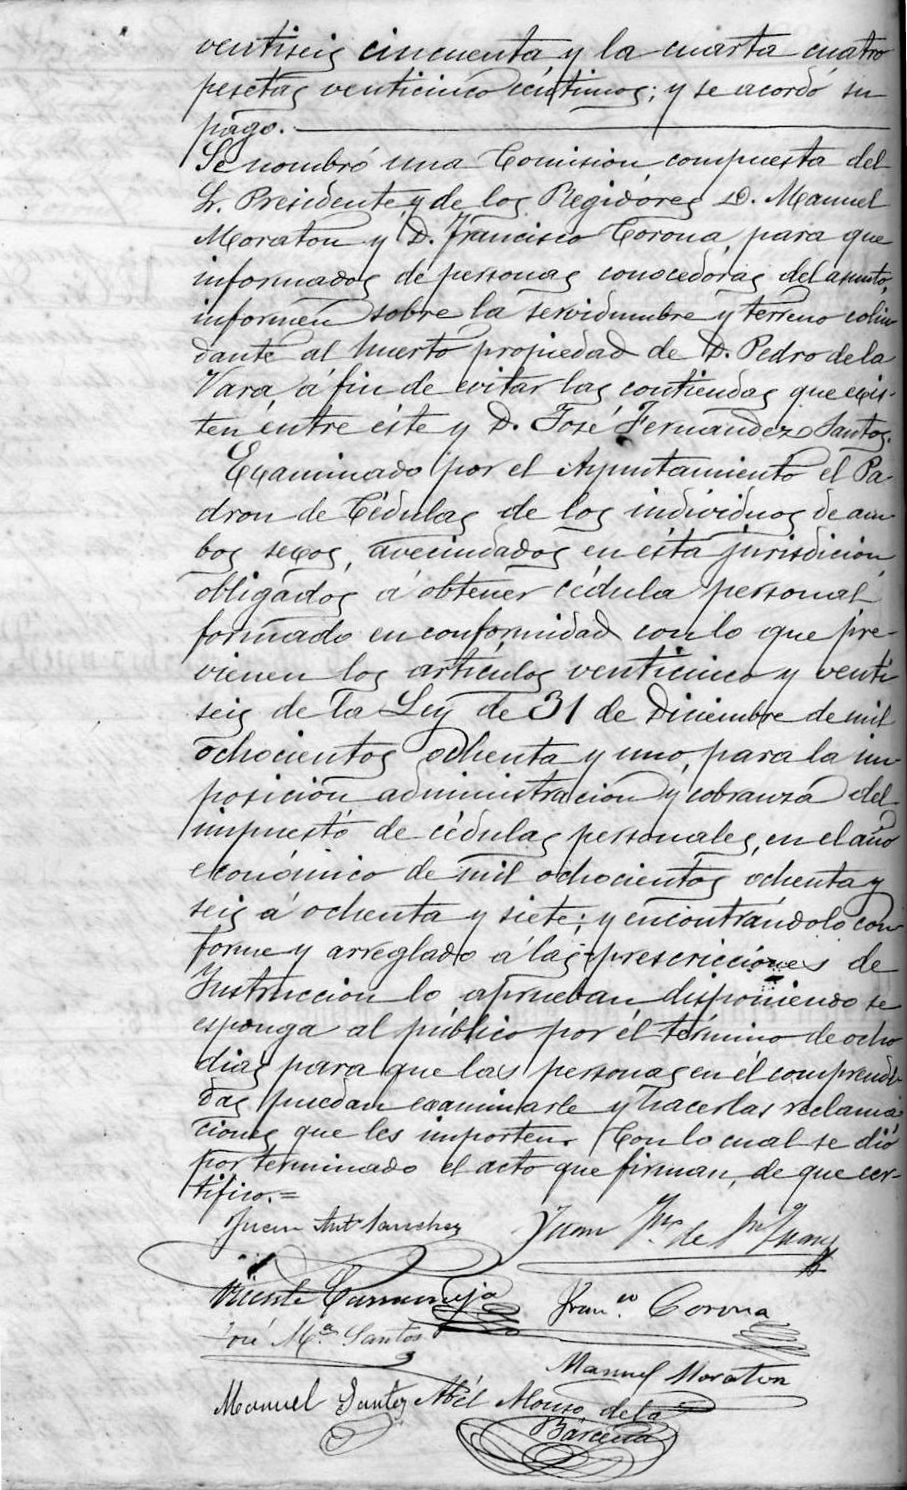 ventiseis cincuenta y la cuarta cuatro
pesetas venticinco céntimos; y se acordó su
pago.
Se nombró una Comisión compuesta del
Sr. Presidente y de los Regidores D. Manuel
Moraton y D. Francisco Corona, para que
informados de personas conocedoras del asunto,
informen sobre la servidumbre y terreno colin
dante al huerto propiedad de D. Pedro de la
Vara, á fin de evitar las contiendas que exis-
ten entre éste y D. José Fernandez Santos.
Examinado por el Ayuntamiento el Pa-
dron de Cédulas de los individuos de am
bos sexos, avecindados en ésta jurisdicion
obligados á obtener cédula personal
formado en conformidad con lo que pre-
vienen los artículos venticinco y venti
seis de la Ley de 31 de Diciembre de mil
ochocientos ochenta y uno, para la im-
posición administración y cobranza del
impuesto de cédulas personales, en el año
económico de mil ochocientos ochenta y
seis á ochenta y siete; y encontrándolo con
forme y arreglado á las prescricciones de
Instruccion lo aprueban disponiendo se
esponga al público por él término de ocho
dias para que las personas en él comprendi
das puedan examinarle y hacer las reclama
ciones que les importen. Con lo cual se dió
por terminado el acto que firman, de que cer-
tifico.=
Juan Ant.º Sanchez Juan de
Vicente Fran.co Corona
José M.ª Santos
Manuel Moraton
Manuel Santos Abél Alonso de la
Bárcena